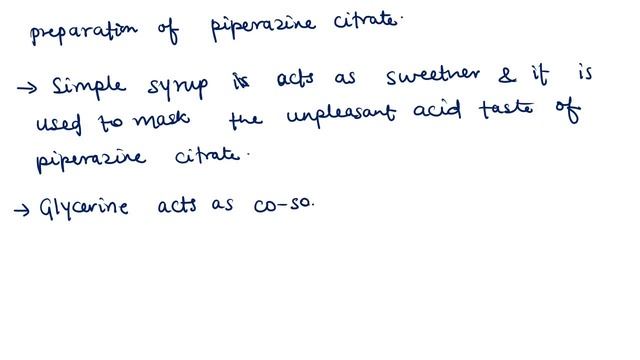 preparation of piperazine citrate.
→ Simple syrup is acts as sweetner & it is
used to mask the unpleasant acid taste of
piperazine citrate.
→ Glycerine acts as co-so.